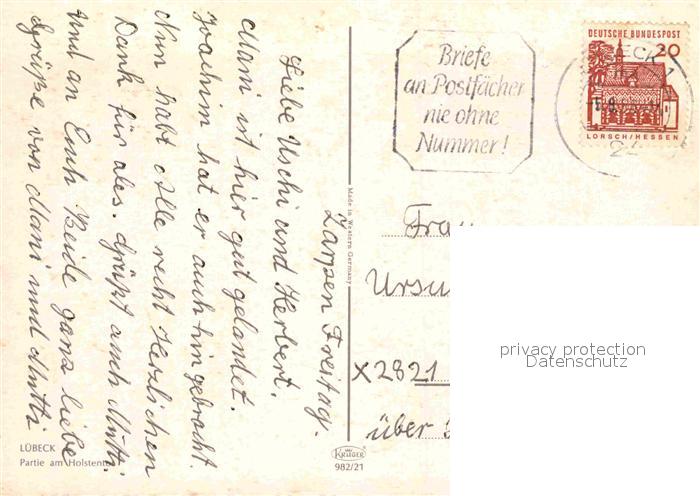 Zarpen Freitag.
Liebe Uschi und Herbert.
Mani ist hier gut gelandet.
Joachim hat er auch hingebracht.
Nun habt Alle recht Herzlichen
Dank für ales. Grüßt auch Mutti.
Und an Euch Beide ganz liebe
Grüße von Mani und Mutti
LÜBECK
Partie am Holstentor
Made in Western Germany
KRÜGER
982/21
Briefe
an Postfächer
nie ohne
Nummer!
DEUTSCHE BUNDESPOST
20
LORSCH/HESSEN
24
Frau
Ursu
X2821
über
privacy protection
Datenschutz